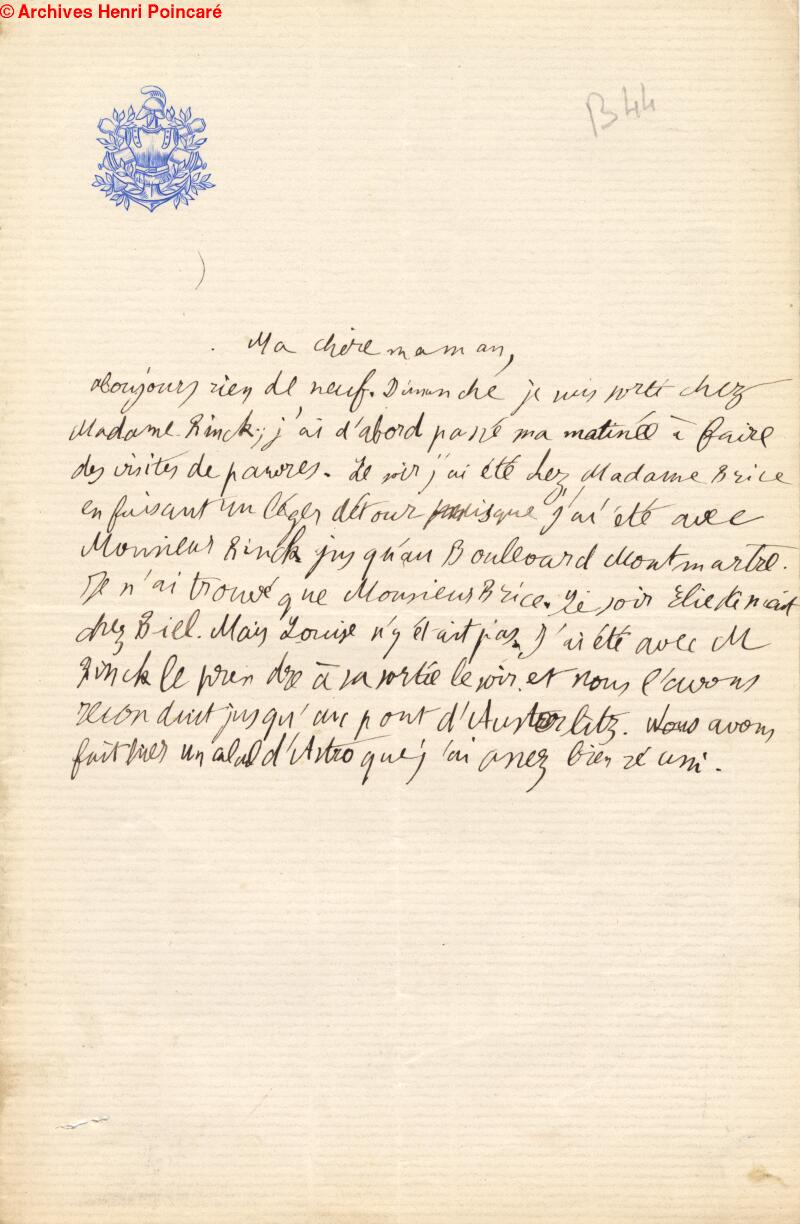 © Archives Henri Poincaré
B 44
Ma chère maman,
Toujours rien de neuf. Dimanche je suis sorti chez
Madame Rinck; j'ai d'abord passé ma matinée à faire
des visites de pauvres. Le soir j'ai été chez Madame Brice
en faisant un léger détour puisque j'ai été avec
Monsieur Rinck jusqu'au Boulevard Montmartre.
Je n'ai trouvé que Monsieur Brice. Le soir Elie dinait
chez Biel. Mais Louise n'y était pas. J'ai été avec M
Rinck le prendre à sa sortie le soir et nous l'avons
reconduit jusqu'au pont d'Austerlitz. Nous avons
fait hier un calcul d'Astro que j'ai assez bien réussi.